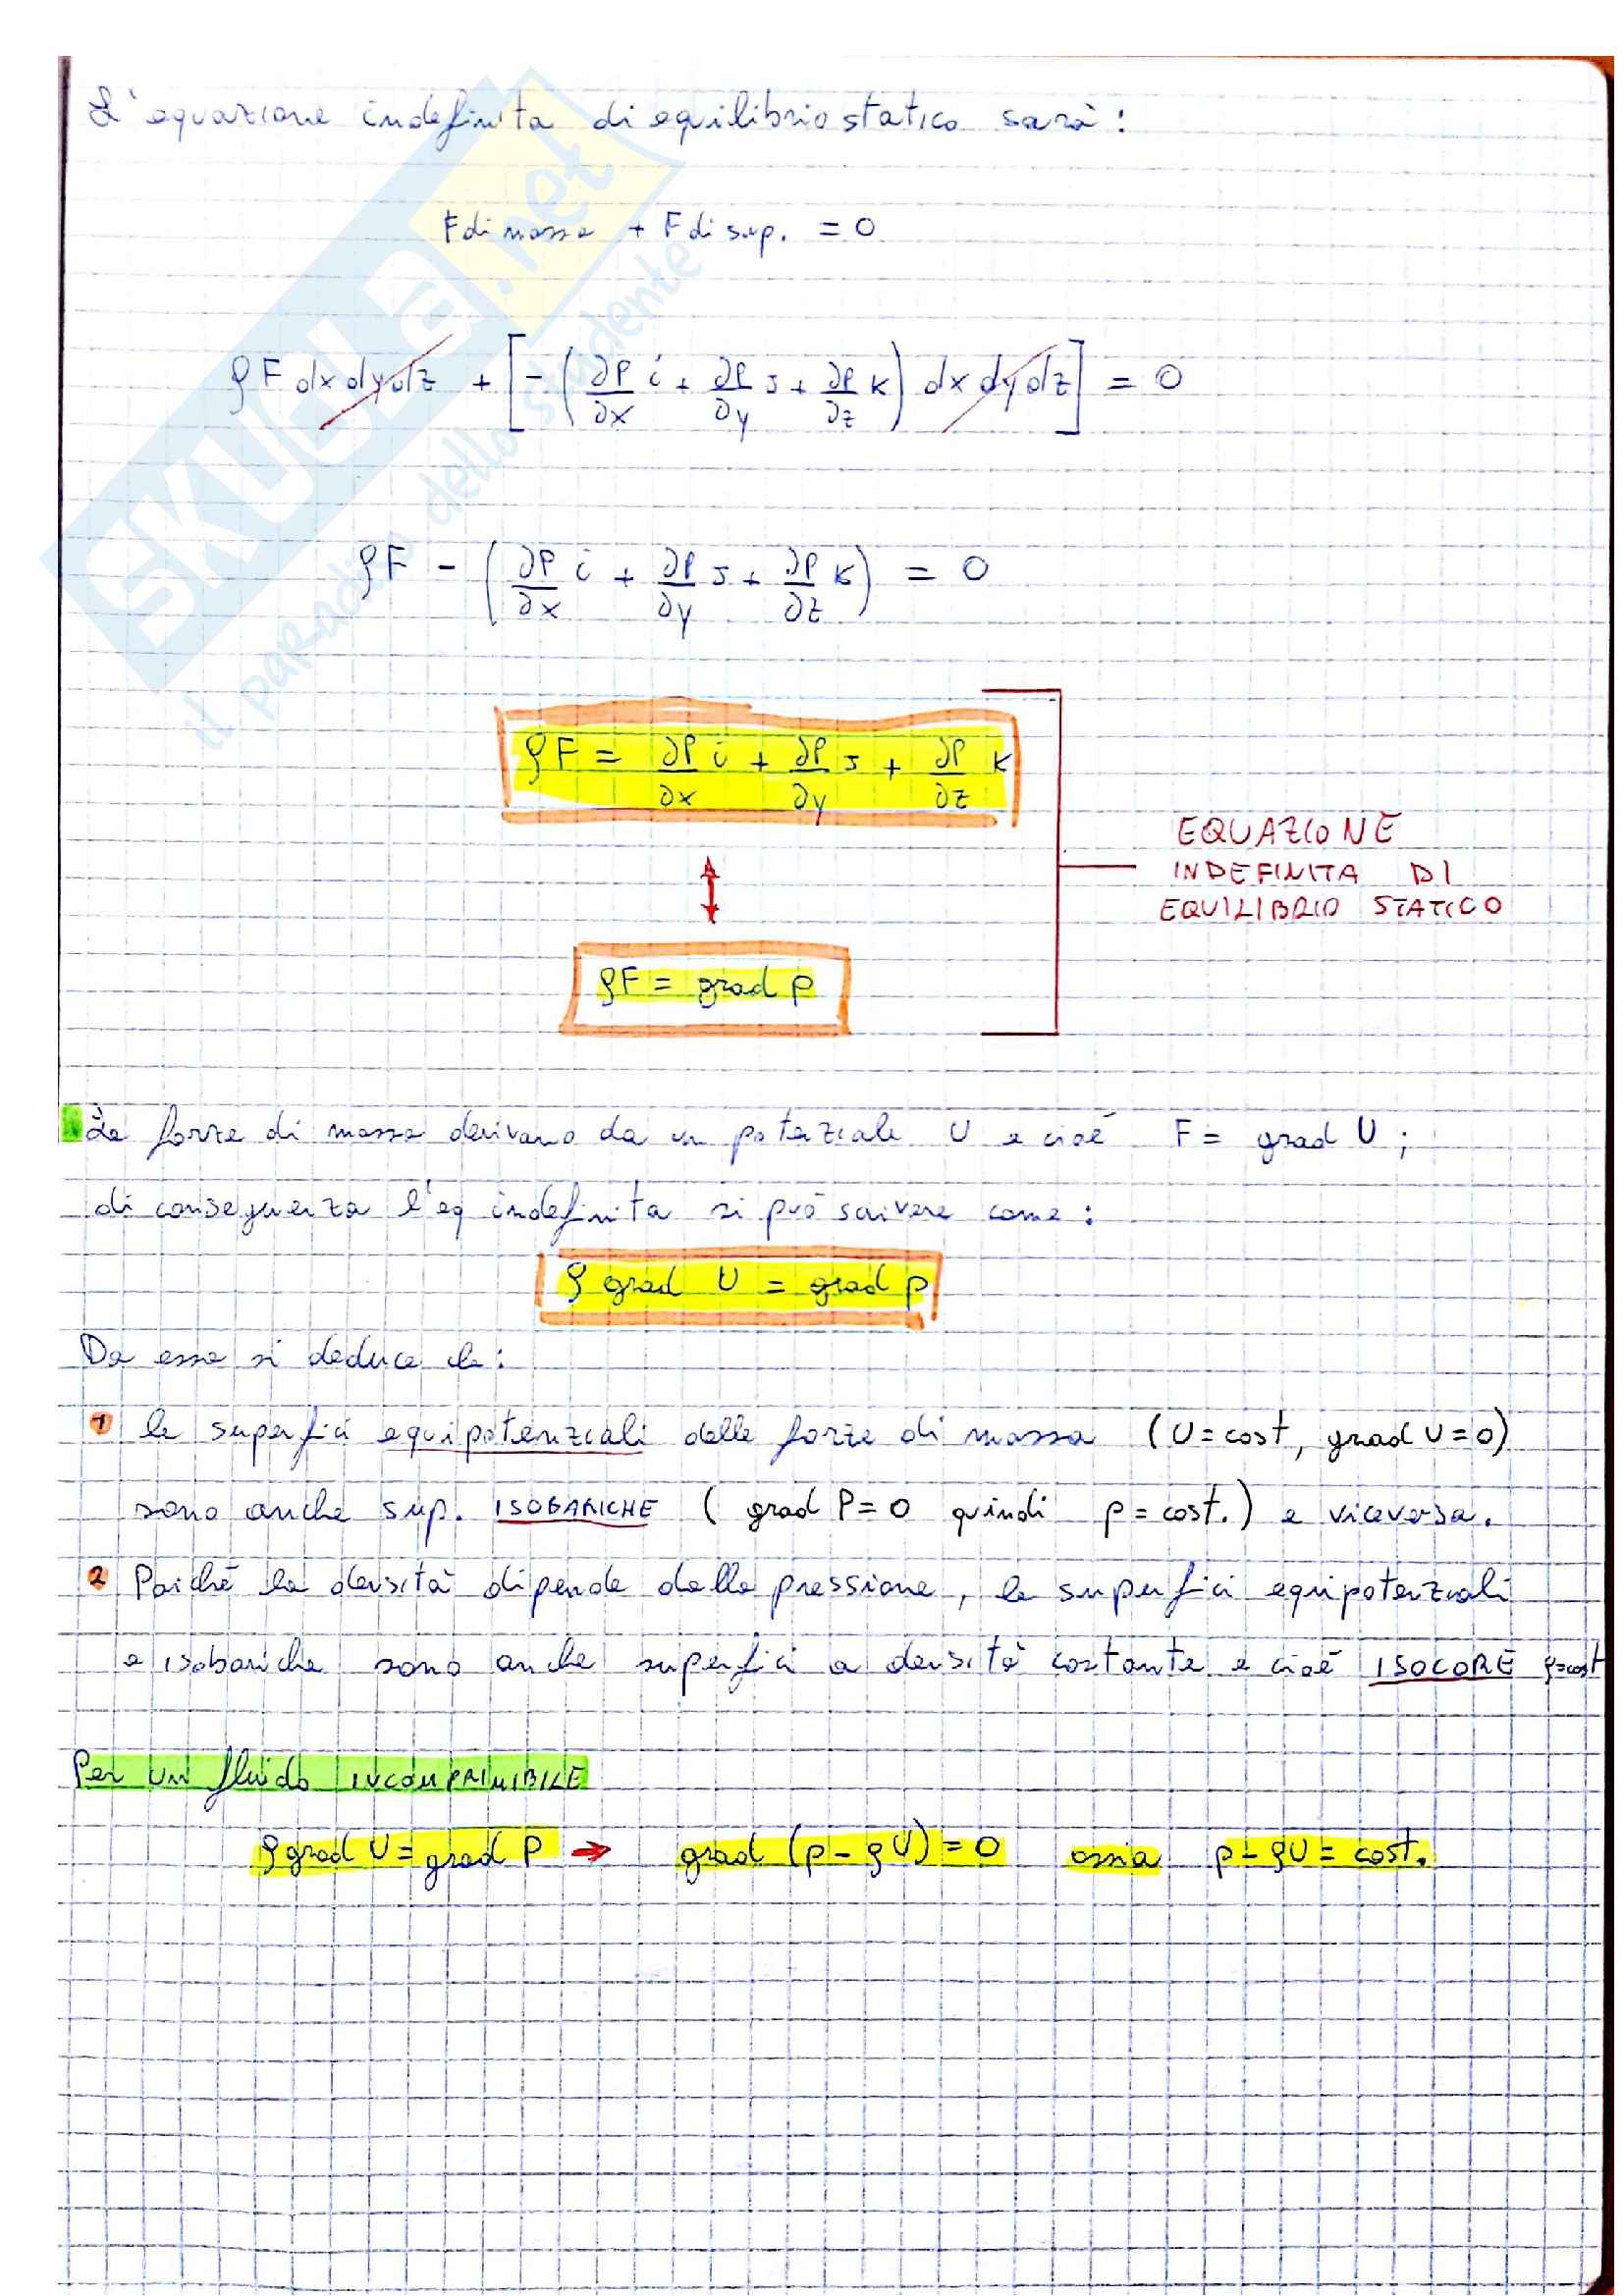 L'equazione indefinita di equilibrio statico sarà:
F di massa + F di sup. = 0
ρF dx dy dz + [-(∂P/∂x i + ∂P/∂y j + ∂P/∂z k) dx dy dz] = 0
ρF - (∂P/∂x i + ∂P/∂y j + ∂P/∂z k) = 0
ρF = ∂P/∂x i + ∂P/∂y j + ∂P/∂z k
EQUAZIONE
INDEFINITA DI
EQUILIBRIO STATICO
ρF = grad p
Le forze di massa derivano da un potenziale U e cioè F = grad U;
di conseguenza l'eq indefinita si può scrivere come:
ρ grad U = grad p
Da essa si deduce che:
1 le superfici equipotenziali delle forze di massa (U=cost, grad U=0)
sono anche sup. ISOBARICHE (grad P=0 quindi p=cost.) e viceversa.
2 Poiché la densità dipende dalla pressione, le superfici equipotenziali
e isobariche sono anche superfici a densità costante e cioè ISOCORE ρ=cost
Per un fluido INCOMPRIMIBILE
ρ grad U = grad P → grad (p - ρU) = 0 ossia p - ρU = cost.
SKUOLA.net
il paradiso dello studente